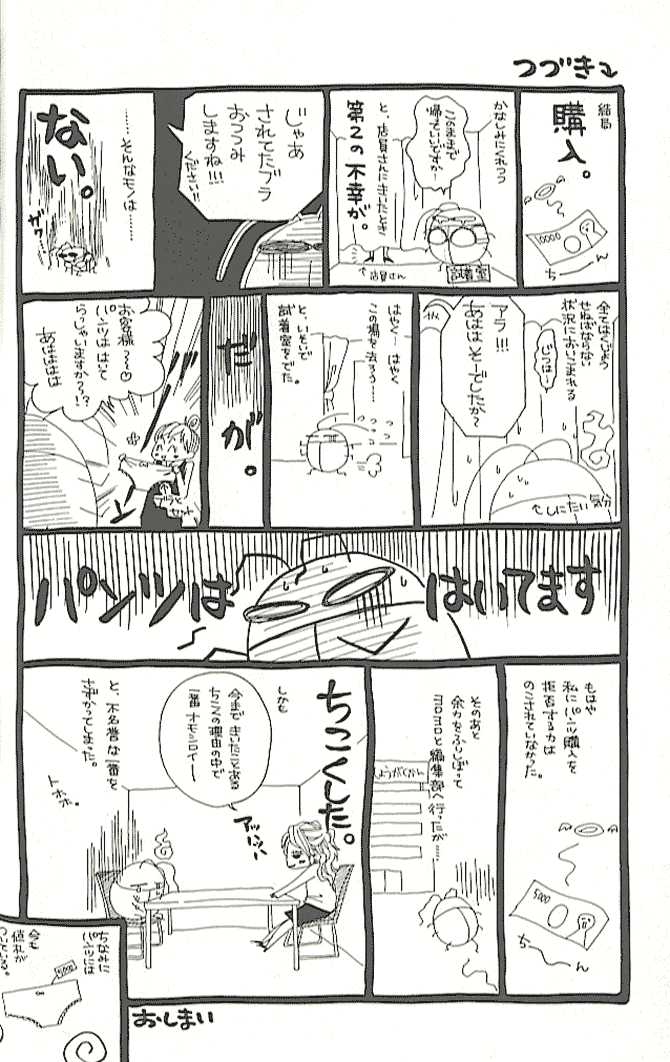 つづき
結局
購入。
10000
ちーん
かなしみにくれつつ
このままで
帰っていいですか…
と、店員さんにきいたとき
第2の不幸が。
試着室
店員さん
じゃあ
されてたブラ
おつつみ
しますね!!!
ください!!
……そんなモノは……
ない。
全てはくじょう
せねばならない
状況においこまれる
じつは…
アラ!!!
あははそーでしたか〜
しにたい気分
はやく…はやく
この場を去ろう……
と、いそいで
試着室をでた。
だが。
お客様〜〜♡
パンツははいて
らっしゃいますか〜っ!?
あはははは
パンツははいてます
もはや
私にパンツ購入を
拒否する力は
のこされていなかった。
5000
ちーん
そのあと
余力をふりしぼって
ヨロヨロと編集部へ行ったが……
しょうがくかん
ちこくした。
しかも
今まできいたことある
ちこくの理由の中で
一番オモシロイー
アッハッハッ
と、不名誉な一番を
さずかってしまった。
トホホ。
ちなみに
パンツには
今も
値札が
ついている。
5000
おしまい